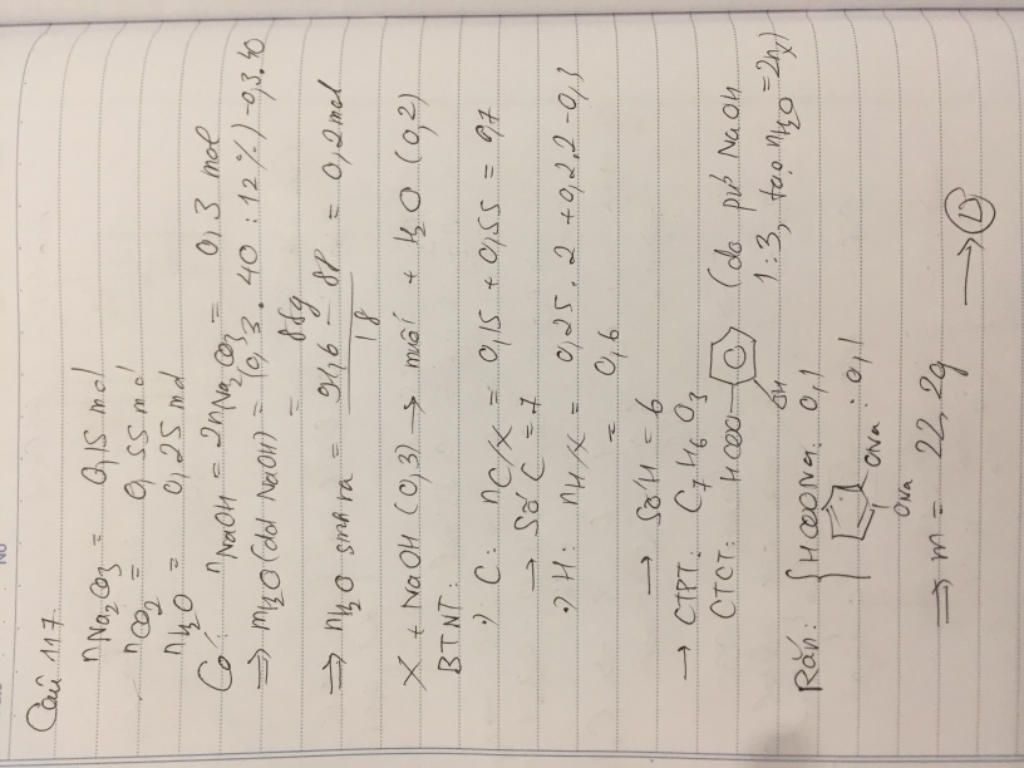 Câu 117.
nNa2CO3 = 0,15 mol
nCO2 = 0,55 mol
nH2O = 0,25 mol
Có: nNaOH = 2nNa2CO3 = 0,3 mol
⇒ mH2O (dd NaOH) = (0,3.40:12%) - 0,3.40
= 88g
⇒ nH2O sinh ra = (94,6 - 88)/18 = 0,2 mol
X + NaOH (0,3) → muối + H2O (0,2)
BTNT:
·) C: nC/X = 0,15 + 0,55 = 0,7
→ Số C = 7
·) H: nH/X = 0,25.2 + 0,2.2 - 0,3
= 0,6
→ Số H = 6
→ CTPT: C7H6O3
CTCT: HCOO OH (do pứ NaOH
1:3, tạo nH2O = 2nX)
Rắn: { HCOONa: 0,1
ONa ONa : 0,1
⇒ m = 22,2g → D